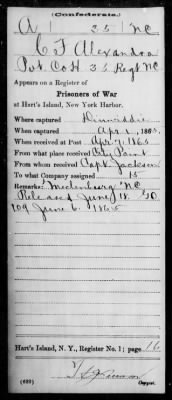 (Confederate.)
A 35 NC
C F Alexandra
Pvt Co H 35 Regt NC
Appears on a Register of
Prisoners of War
at Hart's Island, New York Harbor.
Where captured Dinwiddie
When captured Apr 1, 1865.
When received at Post Apr 7, 1865
From what place received City Point
From whom received Capt Jackson
To what Company assigned 15
Remarks: Mecklenburg NC
Released June 18 GO
109 June 6. 1865
Hart's Island, N. Y., Register No. 1; page 16
(639) Copyist.